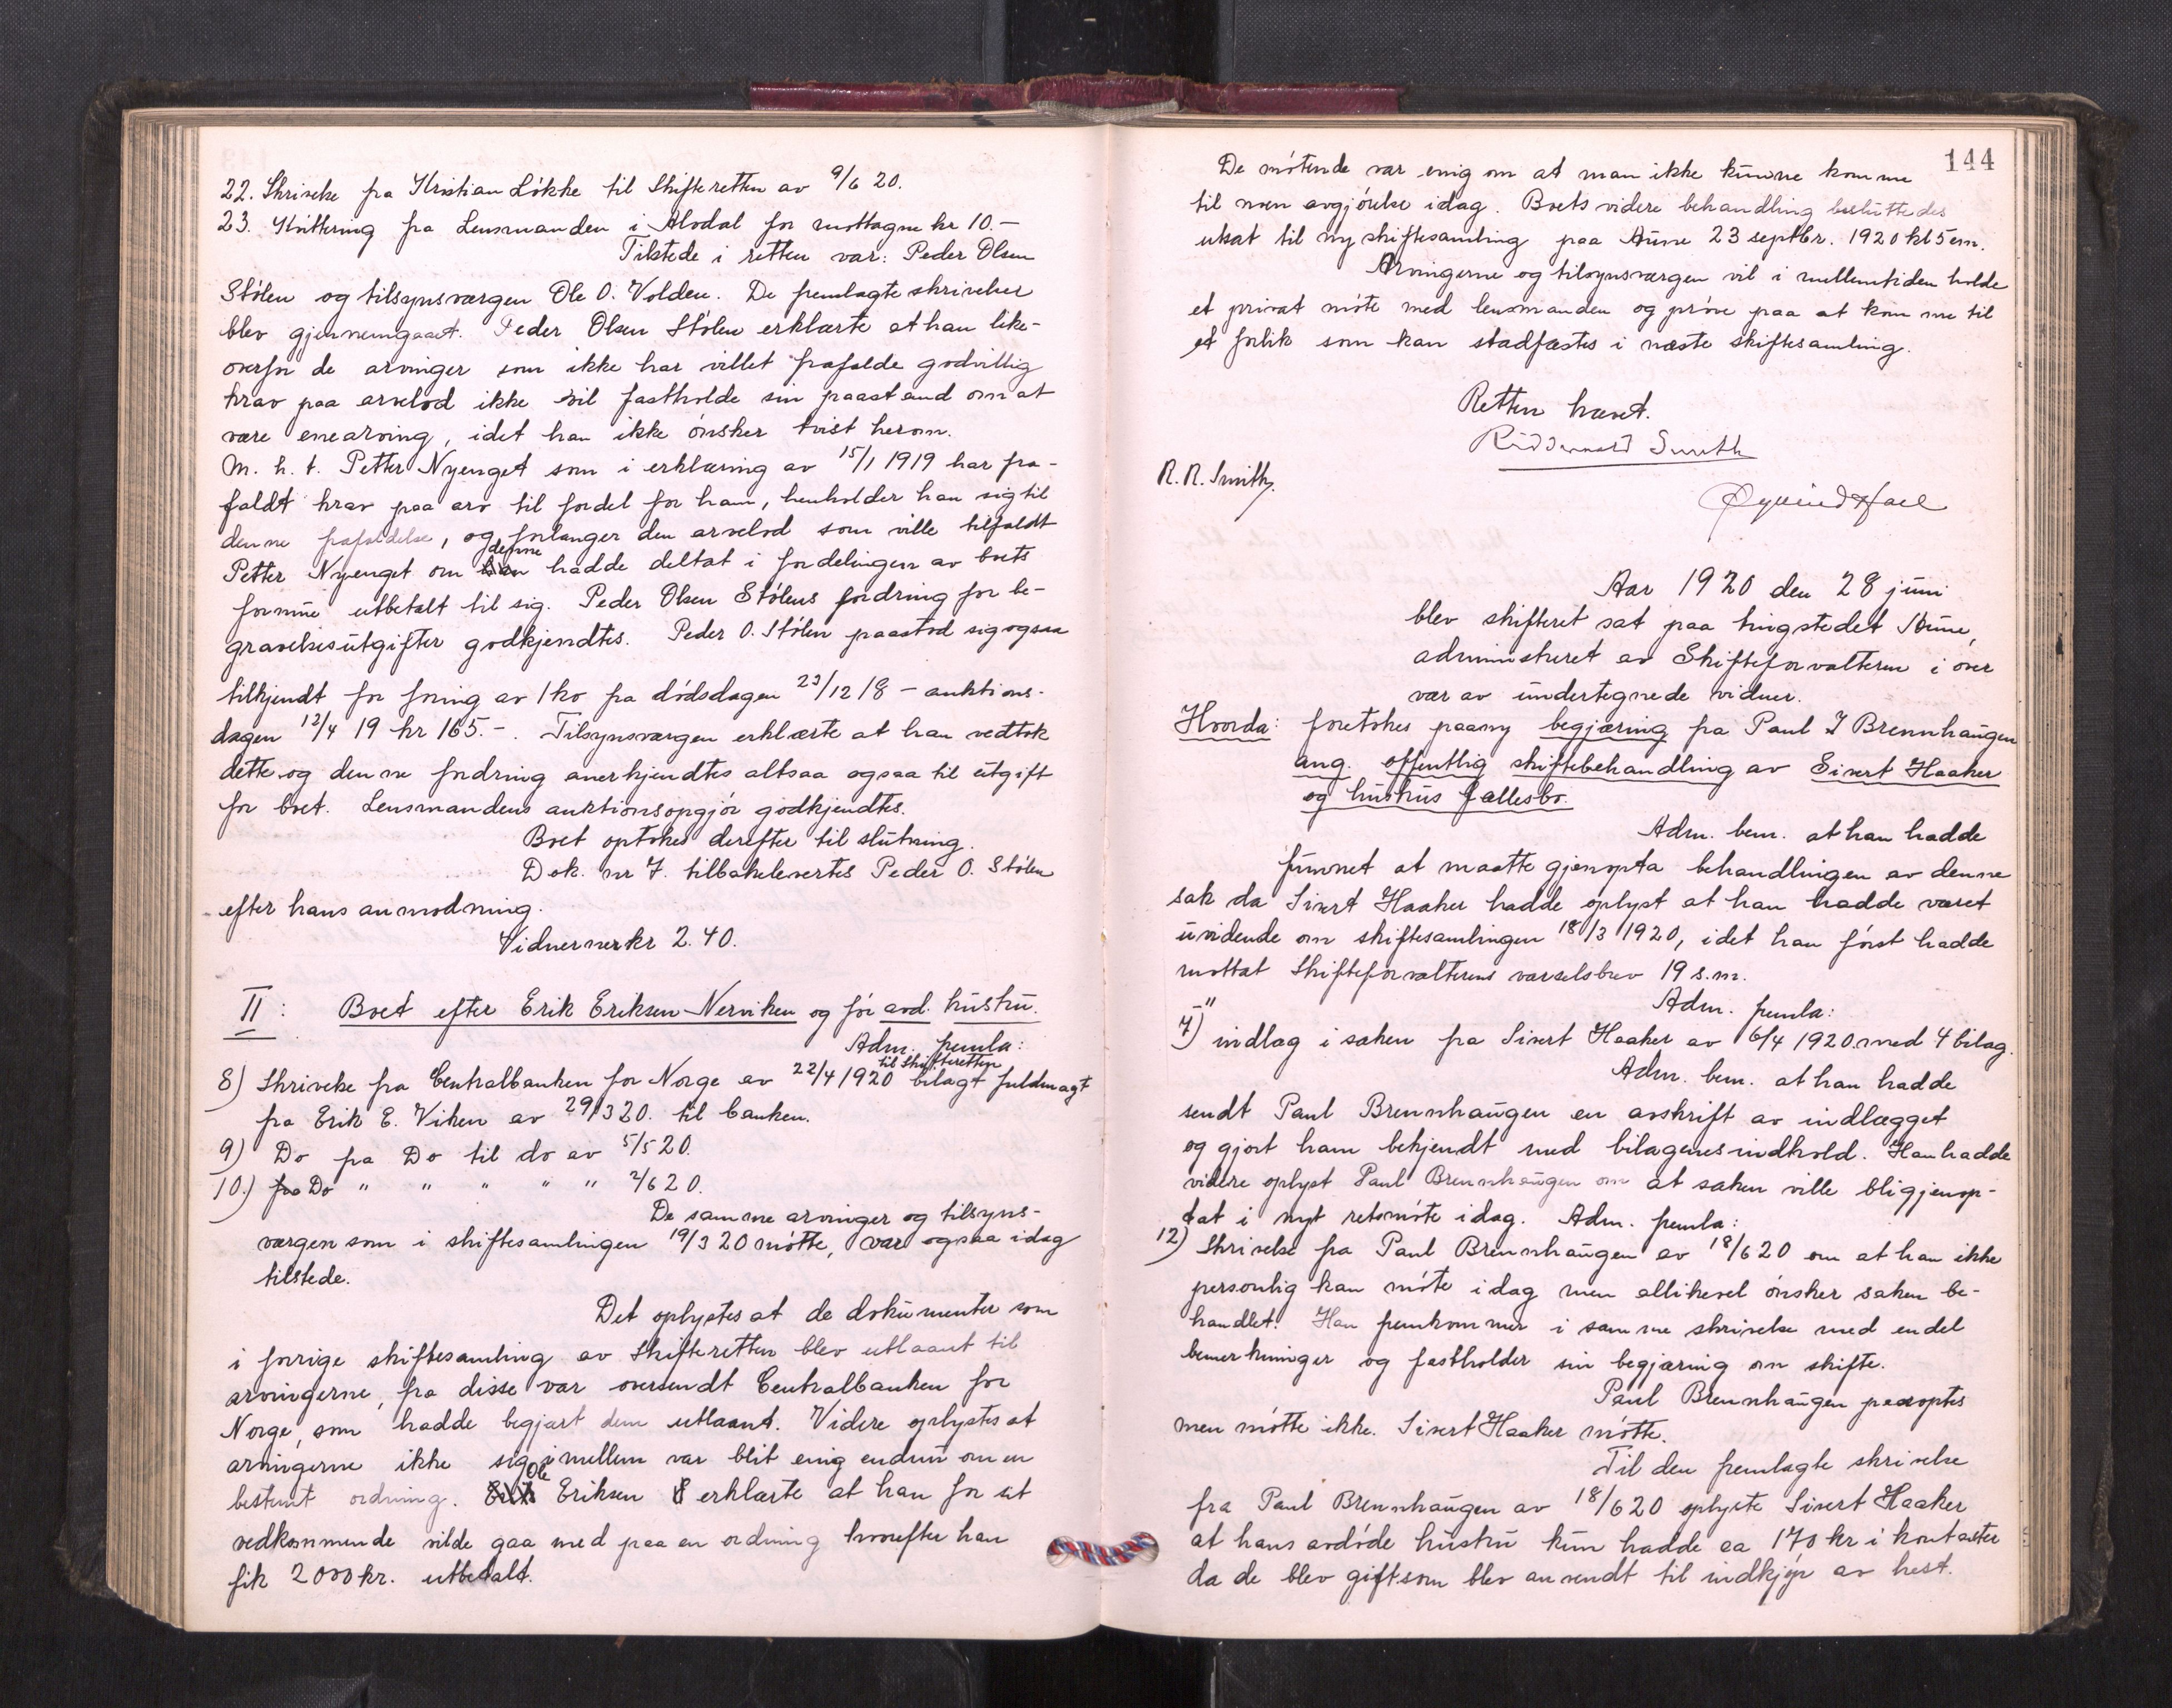 22. Skrivelse fra Kristian Løkke til Skifteretten av 9/6 20.
23. Kvittering fra Lensmanden i Alvdal for mottagne kr 10.-
Tilstede i retten var: Peder Olsen
Stølen og tilsynsværgen Ole O. Volden. De fremlagte skrivelser
blev gjennemgaaet. Peder Olsen Stølen erklærte at han like-
overfor de arvinger som ikke har villet frafalde godvillig
krav paa arvelod ikke vil fastholde sin paastand om at
være enearving, idet han ikke ønsker tvist herom.
M. h. t. Petter Nyenget som i erklæring av 15/1 1919 har fra-
faldt krav paa arv til fordel for ham, henholder han sig til
denne frafaldelse, og forlanger den arvelod som ville tilfaldt
Petter Nyenget om denne hadde deltat i fordelingen av boets
formue utbetalt til sig. Peder Olsen Stølens fordring for be-
gravelsesutgifter godkjendtes. Peder O. Stølen paastod sig ogsaa
tilkjendt for foring av 1 ko fra dødsdagen 23/12 18 - auktions-
dagen 12/4 19 kr 165.-. Tilsynsværgen erklærte at han vedtok
dette og denne fordring anerkjendtes altsaa ogsaa til utgift
for boet. Lensmandens auktionsopgjør godkjendtes.
Boet optokes derefter til slutning.
Dok. nr 7. tilbakelevertes Peder O. Stølen
efter hans anmodning.
Vidner kr 2.40.
II: Boet efter Erik Eriksen Nerviken og før avd. hustru.
Adm. fremla:
8) Skrivelse fra Centralbanken for Norge av 22/4 1920 til Skifteretten bilagt fuldmagt
fra Erik E. Viken av 29/3 20. til banken.
9) Do fra Do til do av 5/5 20.
10.) fra Do " " " " " 2/6 20.
De samme arvinger og tilsyns-
værgen som i skiftesamlingen 19/3 20 møtte, var ogsaa idag
tilstede.
Det oplystes at de dokumenter som
i forrige skiftesamling av Skifteretten blev utlaant til
arvingerne, fra disse var oversendt Centralbanken for
Norge, som hadde begjært dem utlaant. Videre oplystes at
arvingerne ikke sig imellem var blit enig endnu om en
bestemt ordning. Ole Eriksen erklærte at han for sit
vedkommende vilde gaa med paa en ordning hvorefter han
fik 2000 kr. utbetalt.
144
De møtende var enig om at man ikke kunne komme
til noen avgjørelse idag. Boets videre behandling besluttedes
utsat til ny skiftesamling paa Aune 23 septbr. 1920 kl 5 em.
Arvingerne og tilsynsværgen vil i mellemtiden holde
et privat møte med lensmanden og prøve paa at komme til
et forlik som kan stadfæstes i næste skiftesamling.
Retten hævet.
Riddervold Smith
R. R. Smith.
Aar 1920 den 28 juni
blev skifteret sat paa tingstedet Aune,
administreret av Skifteforvalteren i over
vær av undertegnede vidner.
Hvorda: foretokes paany begjæring fra Paul J Brennhaugen
ang. offentlig skiftebehandling av Sivert Haaker
og hustrus fællesbo.
Adm. bem. at han hadde
funnet at maatte gjenopta behandlingen av denne
sak da Sivert Haaker hadde oplyst at han hadde været
uvidende om skiftesamlingen 18/3 1920, idet han først hadde
mottat Skifteforvalterens varselsbrev 19 s.m.
Adm. fremla:
7) indlæg i saken fra Sivert Haaker av 6/4 1920 med 4 bilag.
Adm. bem. at han hadde
sendt Paul Brennhaugen en avskrift av indlægget
og gjort ham bekjendt med bilagenes indhold. Han hadde
videre oplyst Paul Brennhaugen om at saken ville bli gjenop-
tat i nyt retsmøte idag. Adm. fremla:
12) Skrivelse fra Paul Brennhaugen av 18/6 20 om at han ikke
personlig kan møte idag men allikevel ønsker saken be-
handlet. Han fremkommer i samme skrivelse med endel
bemerkninger og fastholder sin begjæring om skifte.
Paul Brennhaugen paaroptes
men møtte ikke. Sivert Haaker møtte.
Til den fremlagte skrivelse
fra Paul Brennhaugen av 18/6 20 oplyste Sivert Haaker
at hans avdøde hustru kun hadde ca 170 kr i kontanter
da de blev gift som blev anvendt til indkjøp av hest.